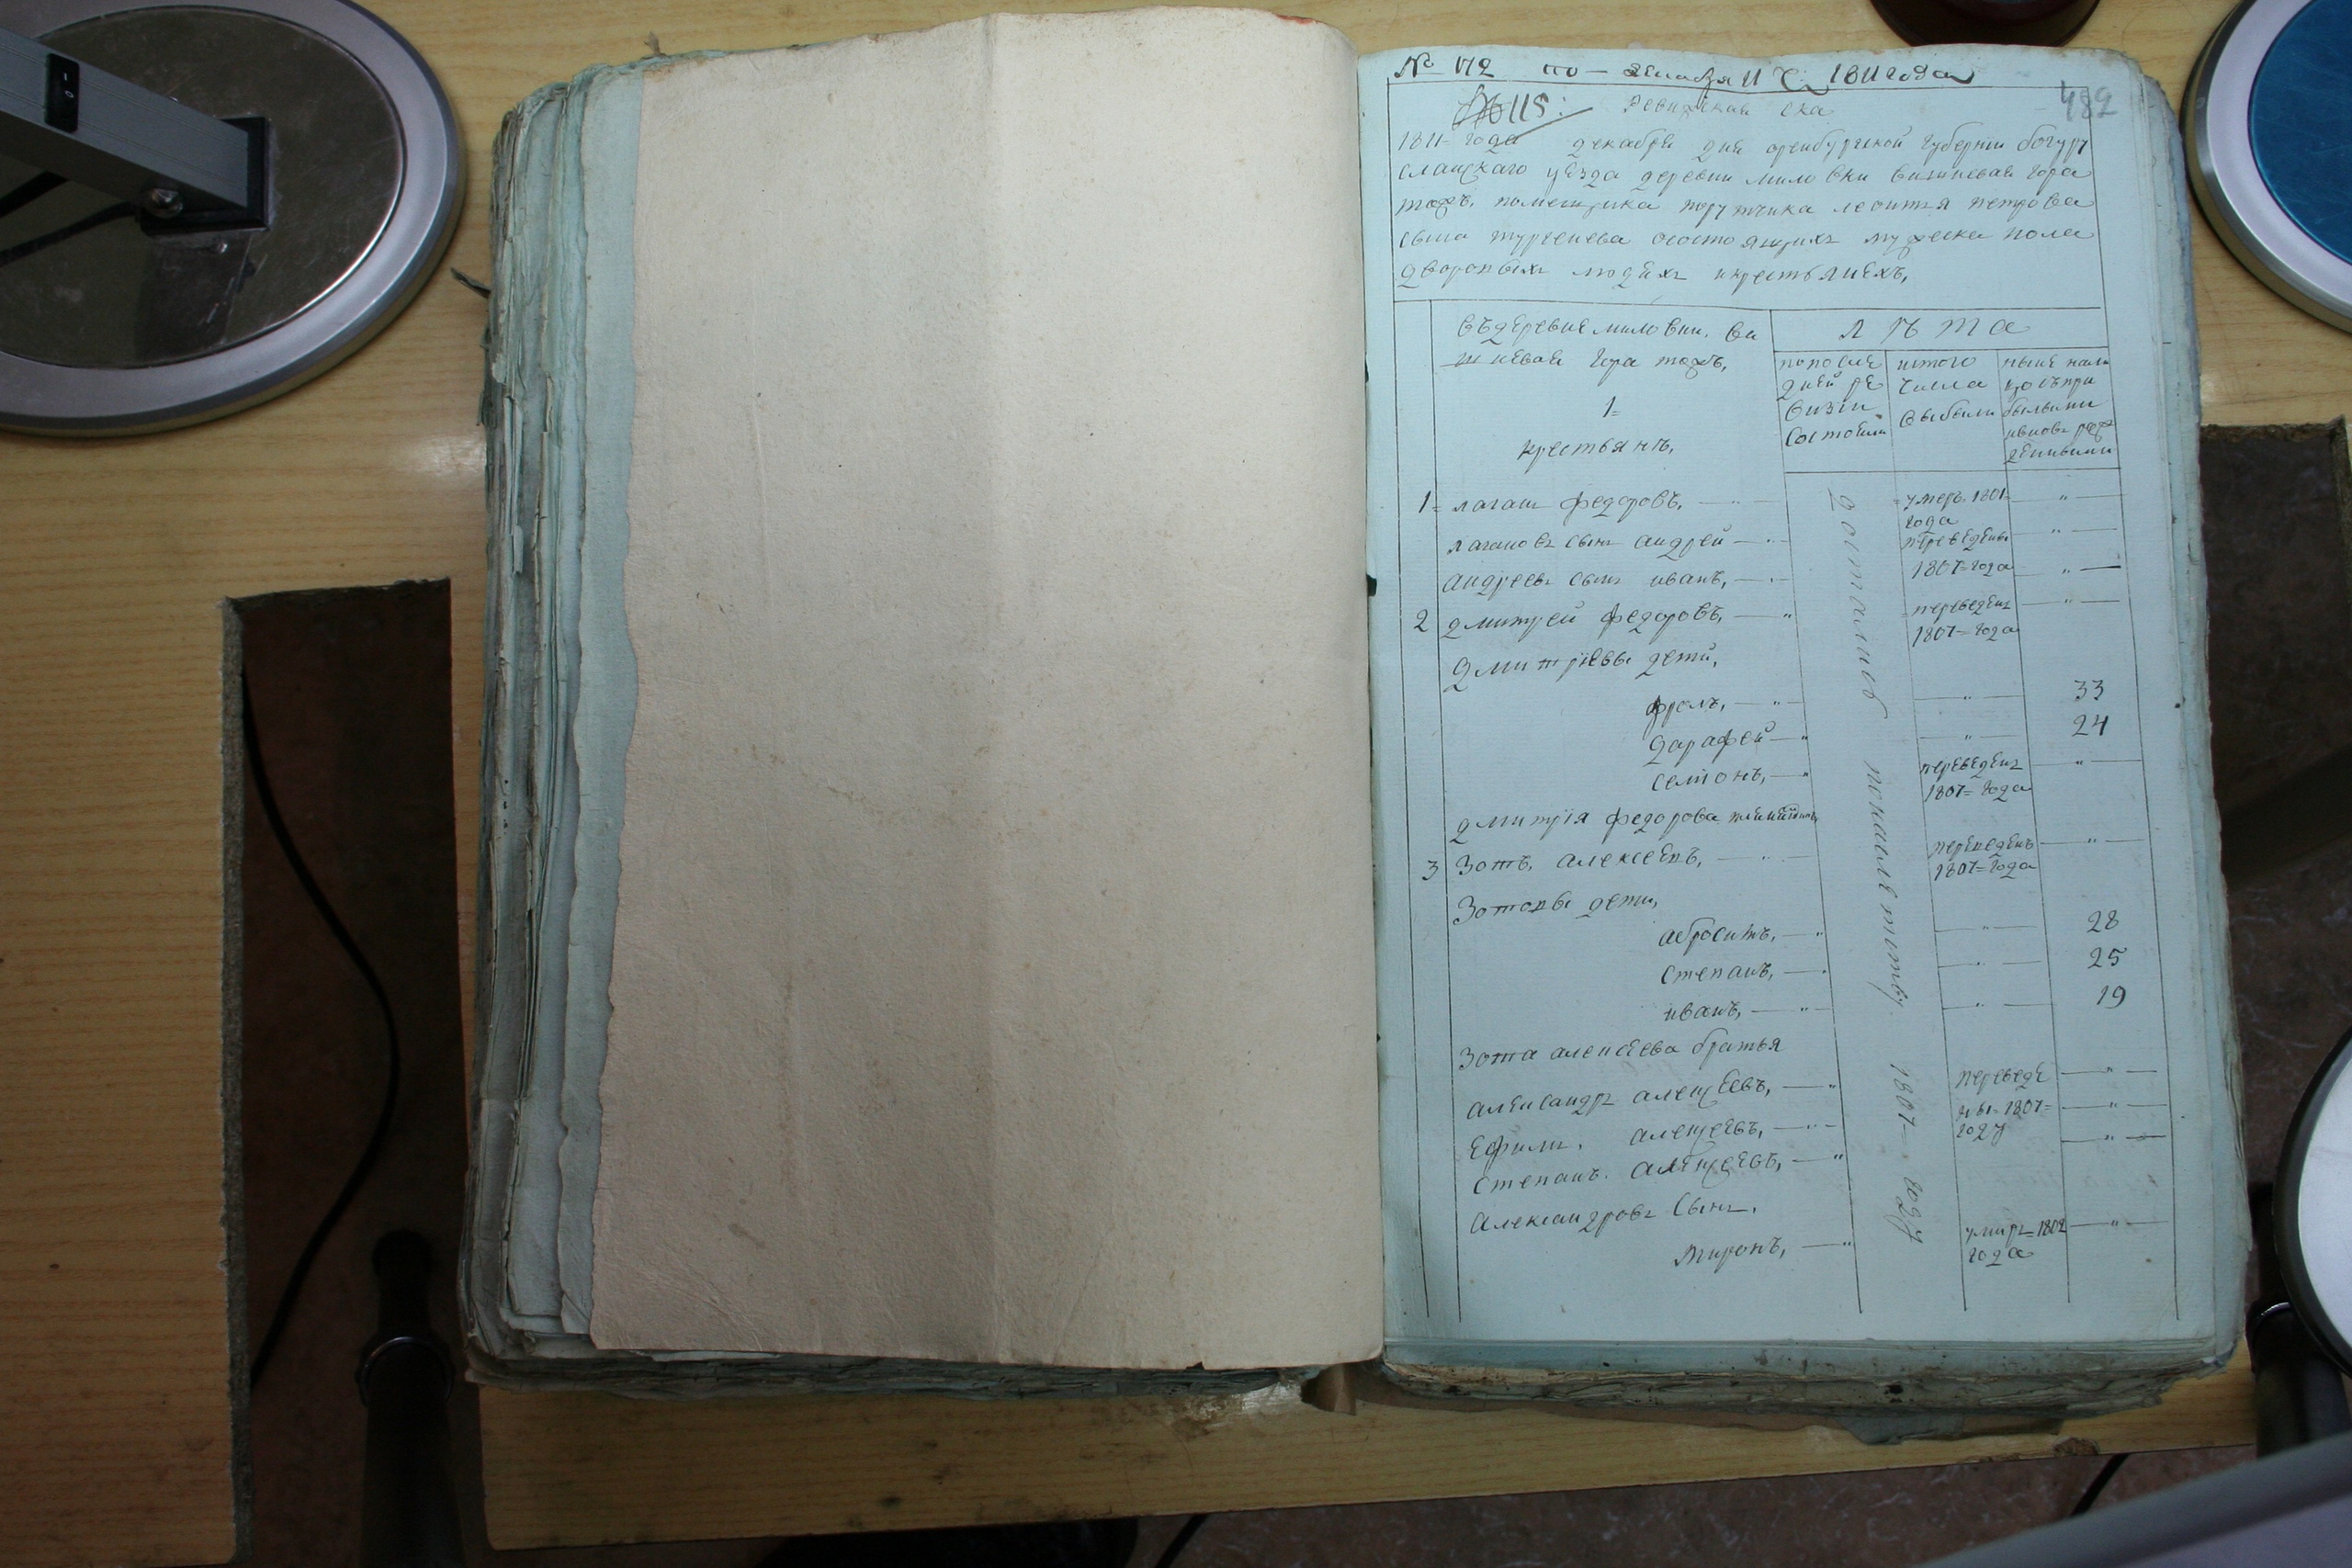 № 172 по декабря 11 ч. 1811 года
№ 115: Ревижская ска 482
1811= года декабря дня оренбургской губернии богуру
сланскаго уезда деревни миловки вишневая гора
тожъ, помещика порутчика леонтья петрова
сына тургенева осостоящихъ мужеска пола
дворовыхъ людехъ икрестьянехъ,
въдеревне миловки. ви
шневая гора тожъ,
1=
крестьянъ,
лѣта
попослѣ
дней ре
визіи
состояли
изтого
числа
выбыли
ныне нали
цо съпри
былыми
ивновь рож
денными
1= лаганъ федоровъ, умеръ 1801=
года
лагановъ сынъ андрей переведены
андреевъ сынъ иванъ, 1807= года
2 дмитрей федоровъ, переведенъ
1807= года
дмитріевы дети,
фролъ, 33
дарафей 24
семіонъ, переведенъ
1807= года
дмитрія федорова
3 Зотъ алексеевъ, переведенъ
1807= года
Зотовы дети,
абросимъ, 28
степанъ, 25
иванъ, 19
Зота алексеева братья
александръ алексеевъ, переведе
ефимъ. алексеевъ, ны= 1807=
степанъ. алексеевъ, году
александровъ сынъ,
миронъ, умиръ= 1802
года
досталисъ 1807= году